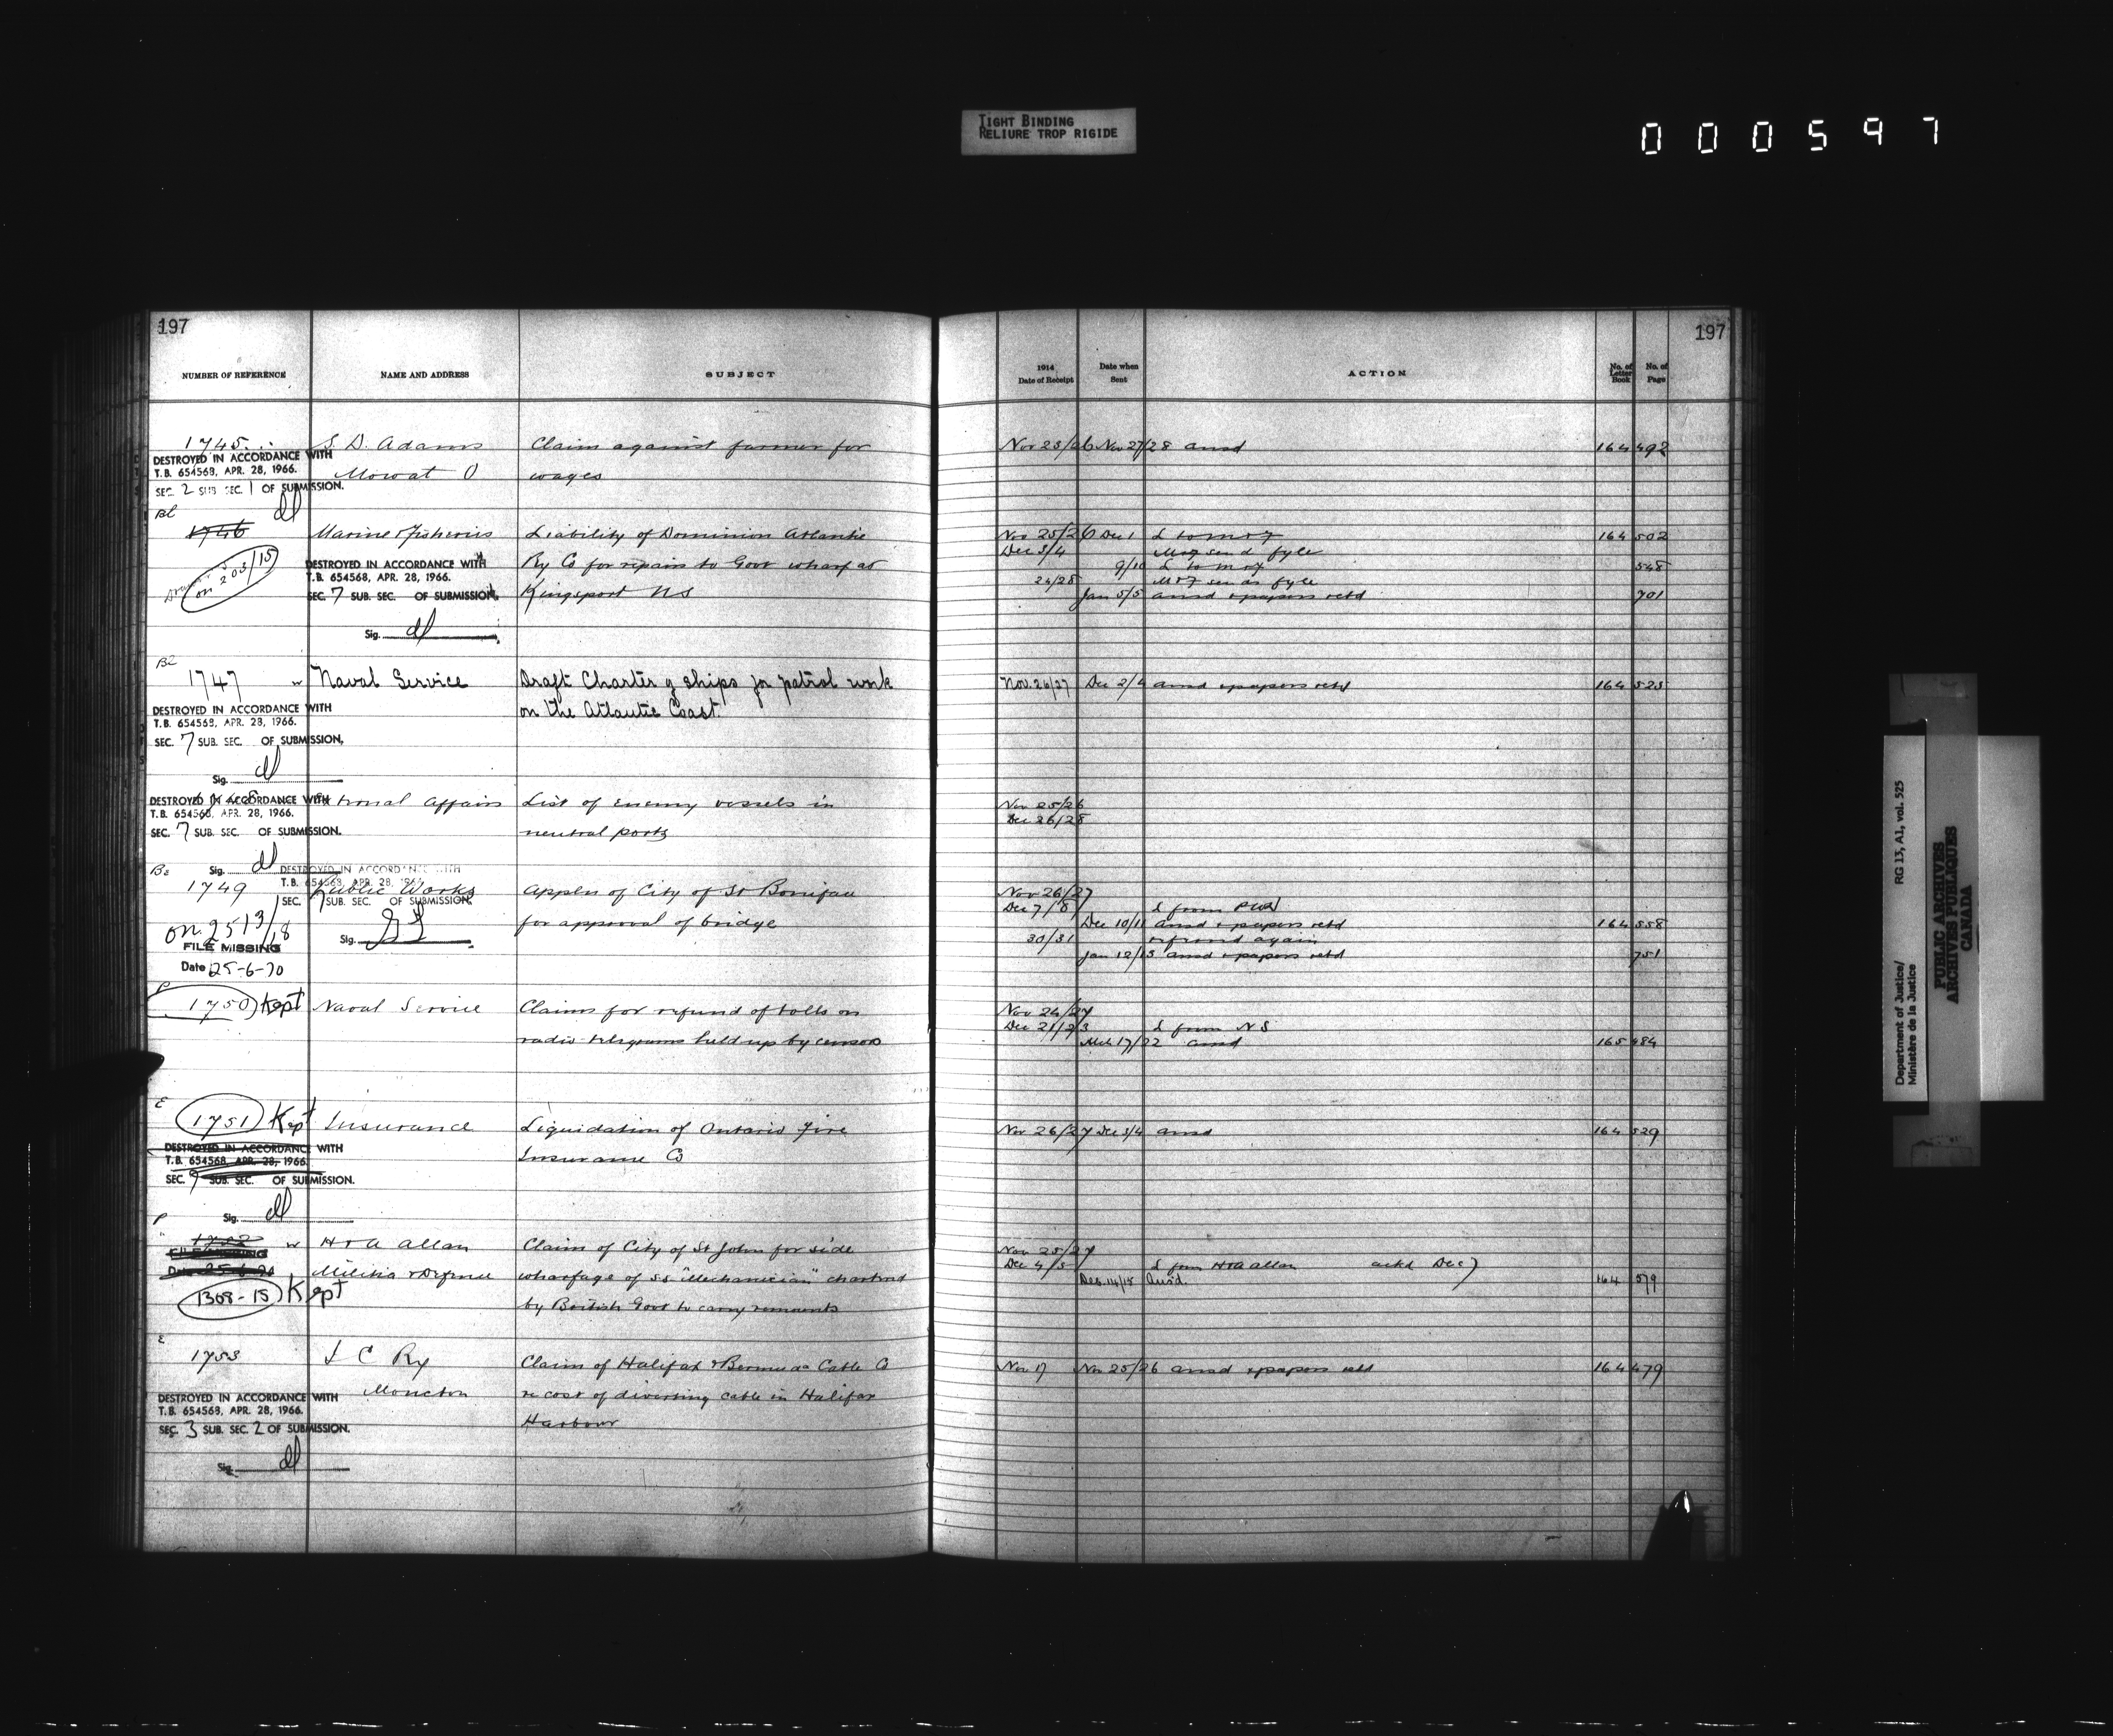 TIGHT BINDING
RELIURE TROP RIGIDE
000597
197
197
NUMBER OF REFERENCE NAME AND ADDRESS SUBJECT
1914 Date of Receipt Date when Sent ACTION No. of Letter Book No. of Page
1745 S. D. Adams Claim against farmer for Nov 25/26 Nov 27/28 ansd 164 492
DESTROYED IN ACCORDANCE WITH
T.B. 654568, APR. 28, 1966.
Mowat O wages
SEC. 2 SUB SEC. 1 OF SUBMISSION.
1746 Marine & Fisheries Liability of Dominion Atlantic Nov 25/26 Dec 1 L to M & F 164 502
Dec 3/4 M & F send fyle
on 203/15 DESTROYED IN ACCORDANCE WITH Ry Co for repairs to Govt wharf at 9/10 L to M & F 548
T.B. 654568, APR. 28, 1966.
24/28 M & F send fyle
SEC. 7 SUB. SEC. OF SUBMISSION. Kingsport NS Jan 5/5 ansd & papers retd 701
Sig.
1747 Naval Service Draft Charter of ships for patrol work Nov. 26/27 Dec 2/4 ansd & papers retd 164 525
DESTROYED IN ACCORDANCE WITH on the Atlantic Coast.
T.B. 654568, APR. 28, 1966.
SEC. 7 SUB. SEC. OF SUBMISSION.
Sig.
DESTROYED IN ACCORDANCE WITH External Affairs List of enemy vessels in Nov 25/26
T.B. 654568, APR. 28, 1966. Dec 26/28
SEC. 7 SUB. SEC. OF SUBMISSION. neutral ports
Sig.
DESTROYED IN ACCORDANCE WITH
T.B. 654568, APR. 28, 1966
1749 Public Works Appln of City of St Boniface Nov 26/27
SEC. 7 SUB. SEC. OF SUBMISSION. Dec 7/8 L from PW
on 2513/18 for approval of bridge Dec 10/11 ansd & papers retd 164 558
FILE MISSING Sig. 30/31 referred again
Date 25-6-70 Jan 12/13 ansd & papers retd 751
1750 Kept Naval Service Claims for refund of tolls on Nov 24/27
Dec 21/23 L from NS
radio telegrams held up by censors Mch 17/22 ansd 165 484
1751 Kept Insurance Liquidation of Ontario Fire Nov 26/27 Dec 3/4 ansd 164 529
DESTROYED IN ACCORDANCE WITH
T.B. 654568, APR. 28, 1966. Insurance Co
SEC. 9 SUB. SEC. OF SUBMISSION.
Sig.
1752 H & A Allan Claim of City of St John for side Nov 25/27
FILE MISSING Dec 4/5 L from H & A Allan ackd Dec 7
Date 25-6-70 Militia & Defence wharfage of SS "Mechanician" chartered Dec. 14/15 Ansd. 164 579
1308-15 Kept by British Govt to carry remounts
1753 I C Ry Claim of Halifax & Bermuda Cable Co Nov 17 Nov 25/26 ansd & papers retd 164 479
DESTROYED IN ACCORDANCE WITH Moncton re cost of diverting cable in Halifax
T.B. 654568, APR. 28, 1966.
SEC. 3 SUB. SEC. 2 OF SUBMISSION. Harbour
Sig.
Department of Justice/
Ministère de la Justice
RG 13, A1, vol. 525
PUBLIC ARCHIVES
ARCHIVES PUBLIQUES
CANADA